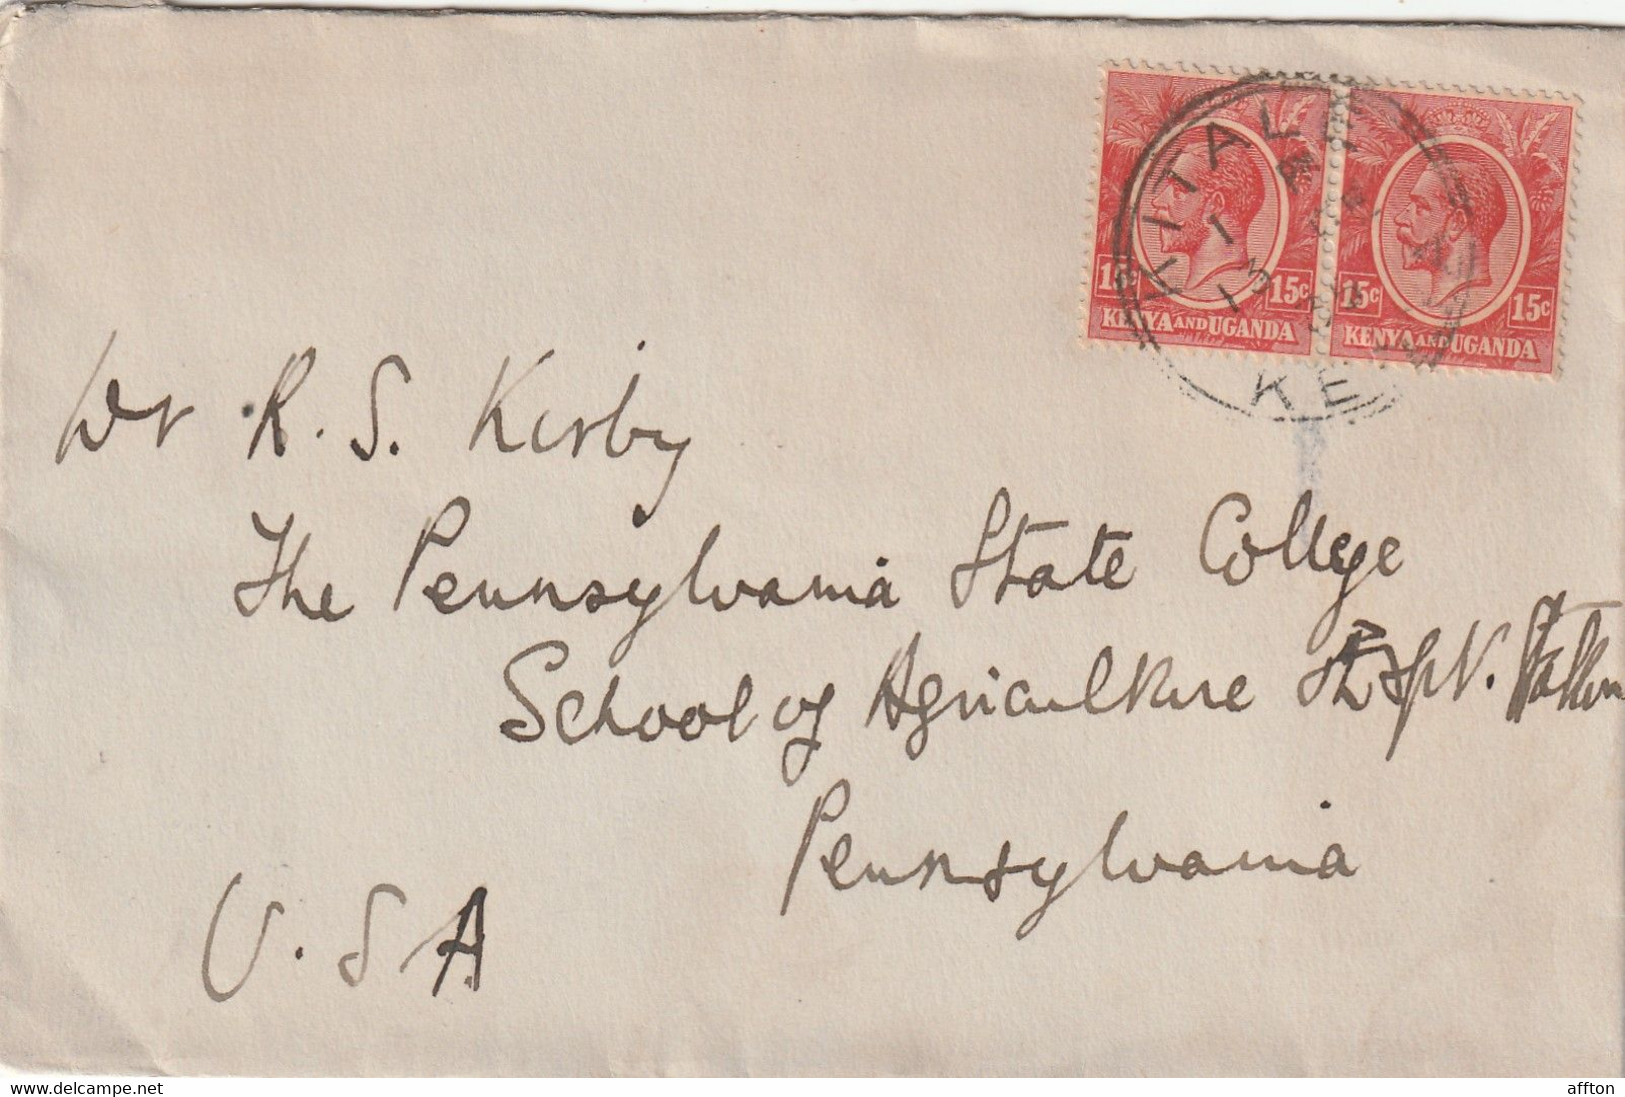 KITALE
15c 15c
KENYA AND UGANDA
15c 15c
KENYA AND UGANDA
KE
Dr R. S. Kirby
The Pennsylvania State College
School of Agriculture
Pennsylvania
U.S A
www.delcampe.net
affton